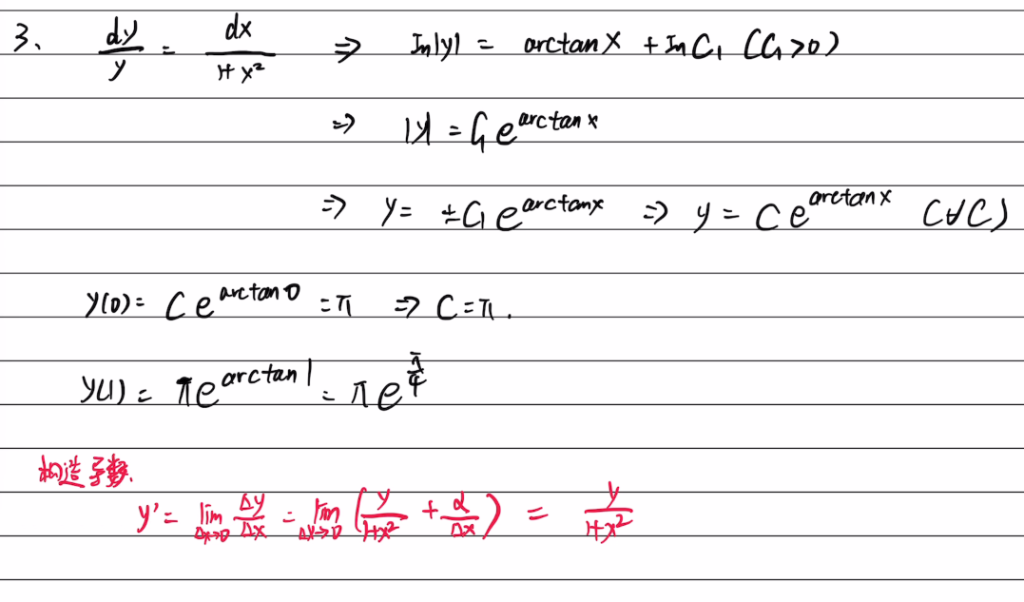 3、 dy/y = dx/(1+x²) ⇒ ln|y| = arctanx + lnC₁ (C₁>0)
⇒ |y| = C₁e^(arctanx)
⇒ y = ±C₁e^(arctanx) ⇒ y = Ce^(arctanx) (∀C)
y(0) = Ce^(arctan0) = π ⇒ C = π.
y(1) = πe^(arctan1) = πe^(π/4)
构造导数.
y' = lim_(Δx→0) Δy/Δx = lim_(Δx→0) (y/(1+x²) + α/Δx) = y/(1+x²)